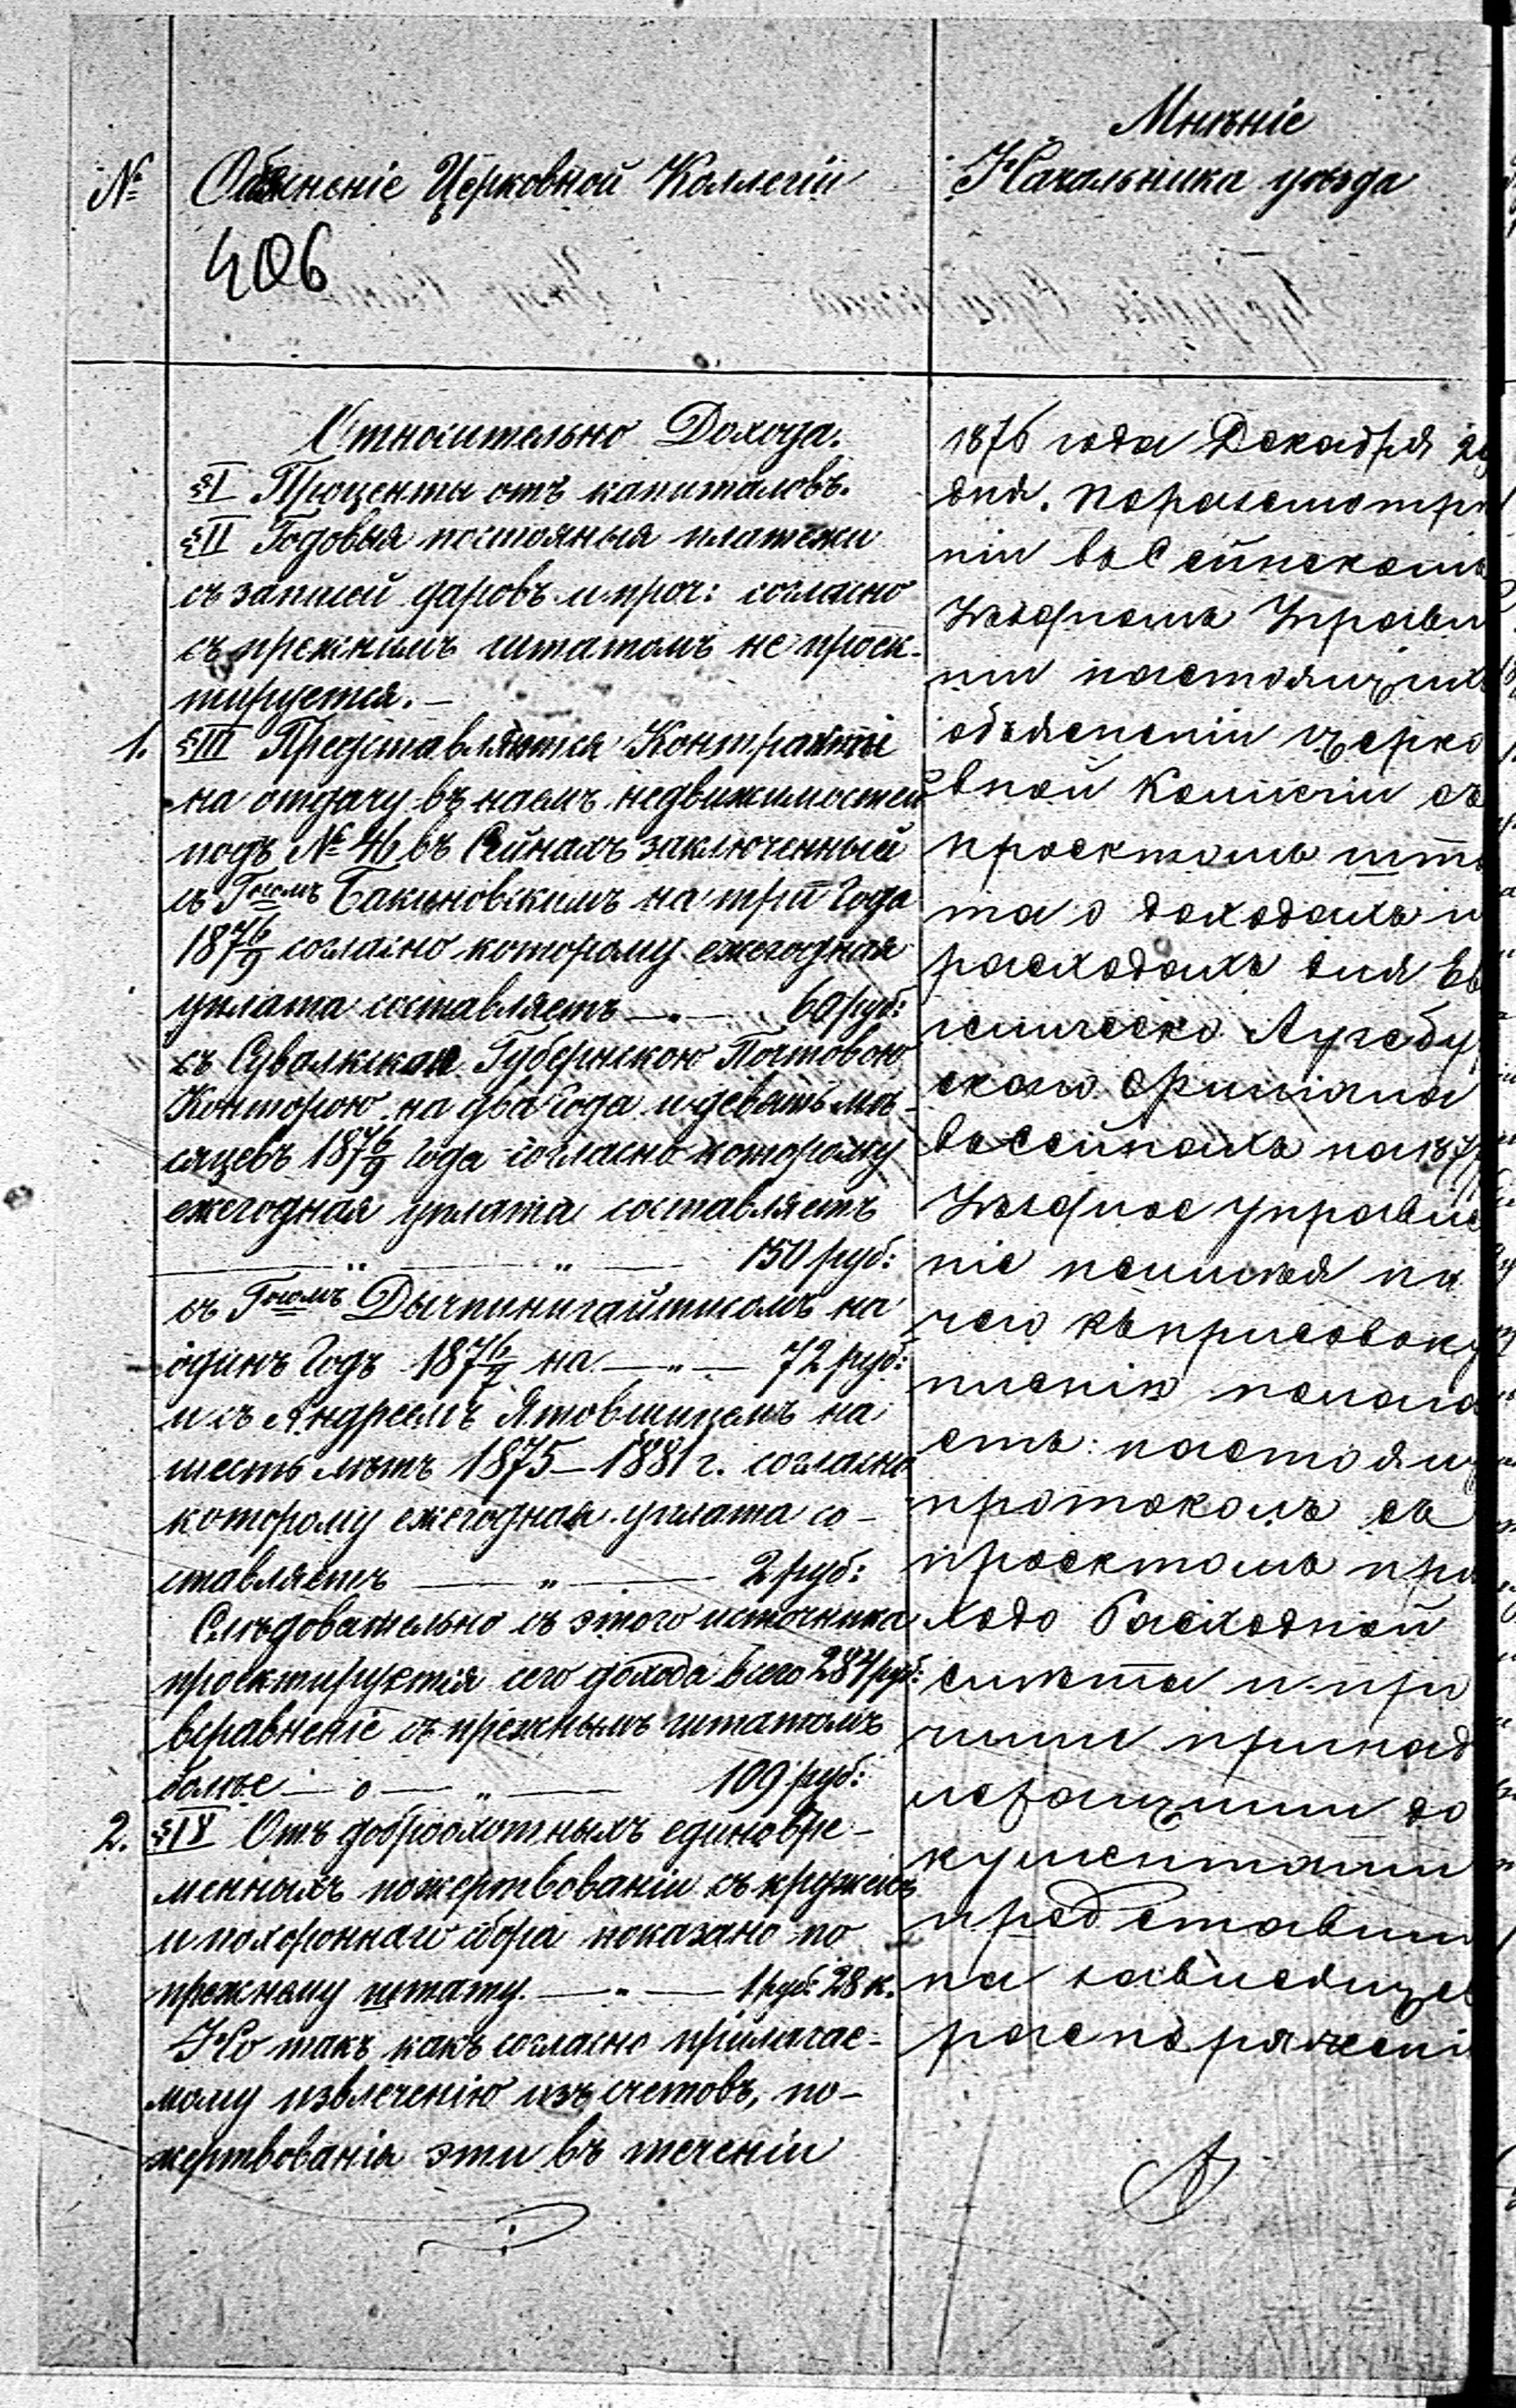 №
Объясненіе Церковной Коллегіи
Мнѣніе
Начальника уѣзда
406
Относительно Дохода.
§I Проценты отъ капиталовъ.
§II Годовыя постоянныя платежи
съ записей даровъ и проч: согласно
съ прежнимъ штатомъ не проек-
тируется.—
1. §III Представляются Контракты
на отдачу въ наемъ недвижимостей
подъ № 46 въ Сейнахъ заключенный
съ Госп͟о͟мъ Бакиновскимъ на три Года
1876/9 согласно которому ежегодная
уплата составляетъ —„— 60 руб:
съ Сувалкскою Губернскою Почтовою
Конторою на два Года и девять мѣ-
сяцевъ 1876/9 Года согласно которому
ежегодная уплата составляетъ
— „ — „ — 150 руб:
съ Гномъ на
одинъ Годъ 1876/7 на —„— 72 руб:
и съ Андреемъ Ятовщицемъ на
шесть лѣтъ 1875—1881 г. согласно
которому ежегодная уплата со-
ставляетъ — „ — 2 руб:
Слѣдовательно съ этого источника
проектируется сего дохода всего 284 руб:
всравненіе съ прежнымъ штатомъ
болѣе — „ — „ — 109 руб:
2. §IV Отъ доброохотныхъ единовре-
менныхъ пожертвованіи съ кружекъ
и похороннаго сбора показано по
прежному штату. —„— 1 руб: 28 к.
Но такъ какъ согласно прилагае-
мому извлеченію изъ счетовъ, по-
жертвованія эти въ теченіи
1876 года Декабря 29
дня. По разсмотрѣ
ніи въ Сейнскомъ
Уѣздномъ Управле
ніи настоящихъ
объясненіи церко
вной Коллегіи съ
проектомъ шта
та о доходахъ и
расходахъ для Ев
гелическо Аугсбу
скаго
въ Сейнахъ на 187
Уѣздное Управле
ніе неимѣя ни
чего къ присовоку
пленію полага
етъ: настоящ
протоколъ съ
проектомъ при
ходо Расходной
смѣты и про
чими принад
лежащими до
кументами
представить
на зависящее
распоряженіе